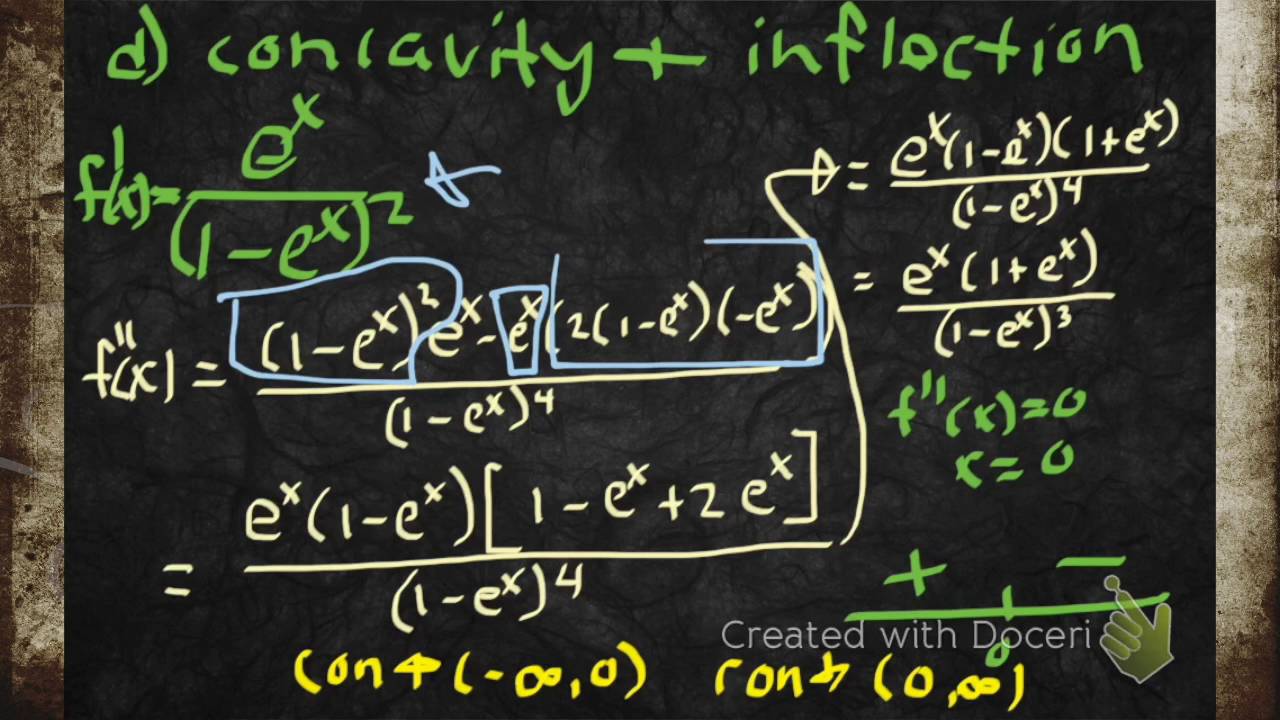 d) concavity + inflection
f'(x) = e^x / (1 - e^x)^2
f''(x) = (1 - e^x)^2 e^x - e^x (2(1 - e^x)(-e^x)) / (1 - e^x)^4
= e^x (1 - e^x)[1 - e^x + 2e^x] / (1 - e^x)^4
= e^x (1 - e^x)(1 + e^x) / (1 - e^x)^4
= e^x (1 + e^x) / (1 - e^x)^3
f''(x) = 0
x = 0
+ -
0
Created with Doceri
con ↑ (-∞, 0) con ↓ (0, ∞)